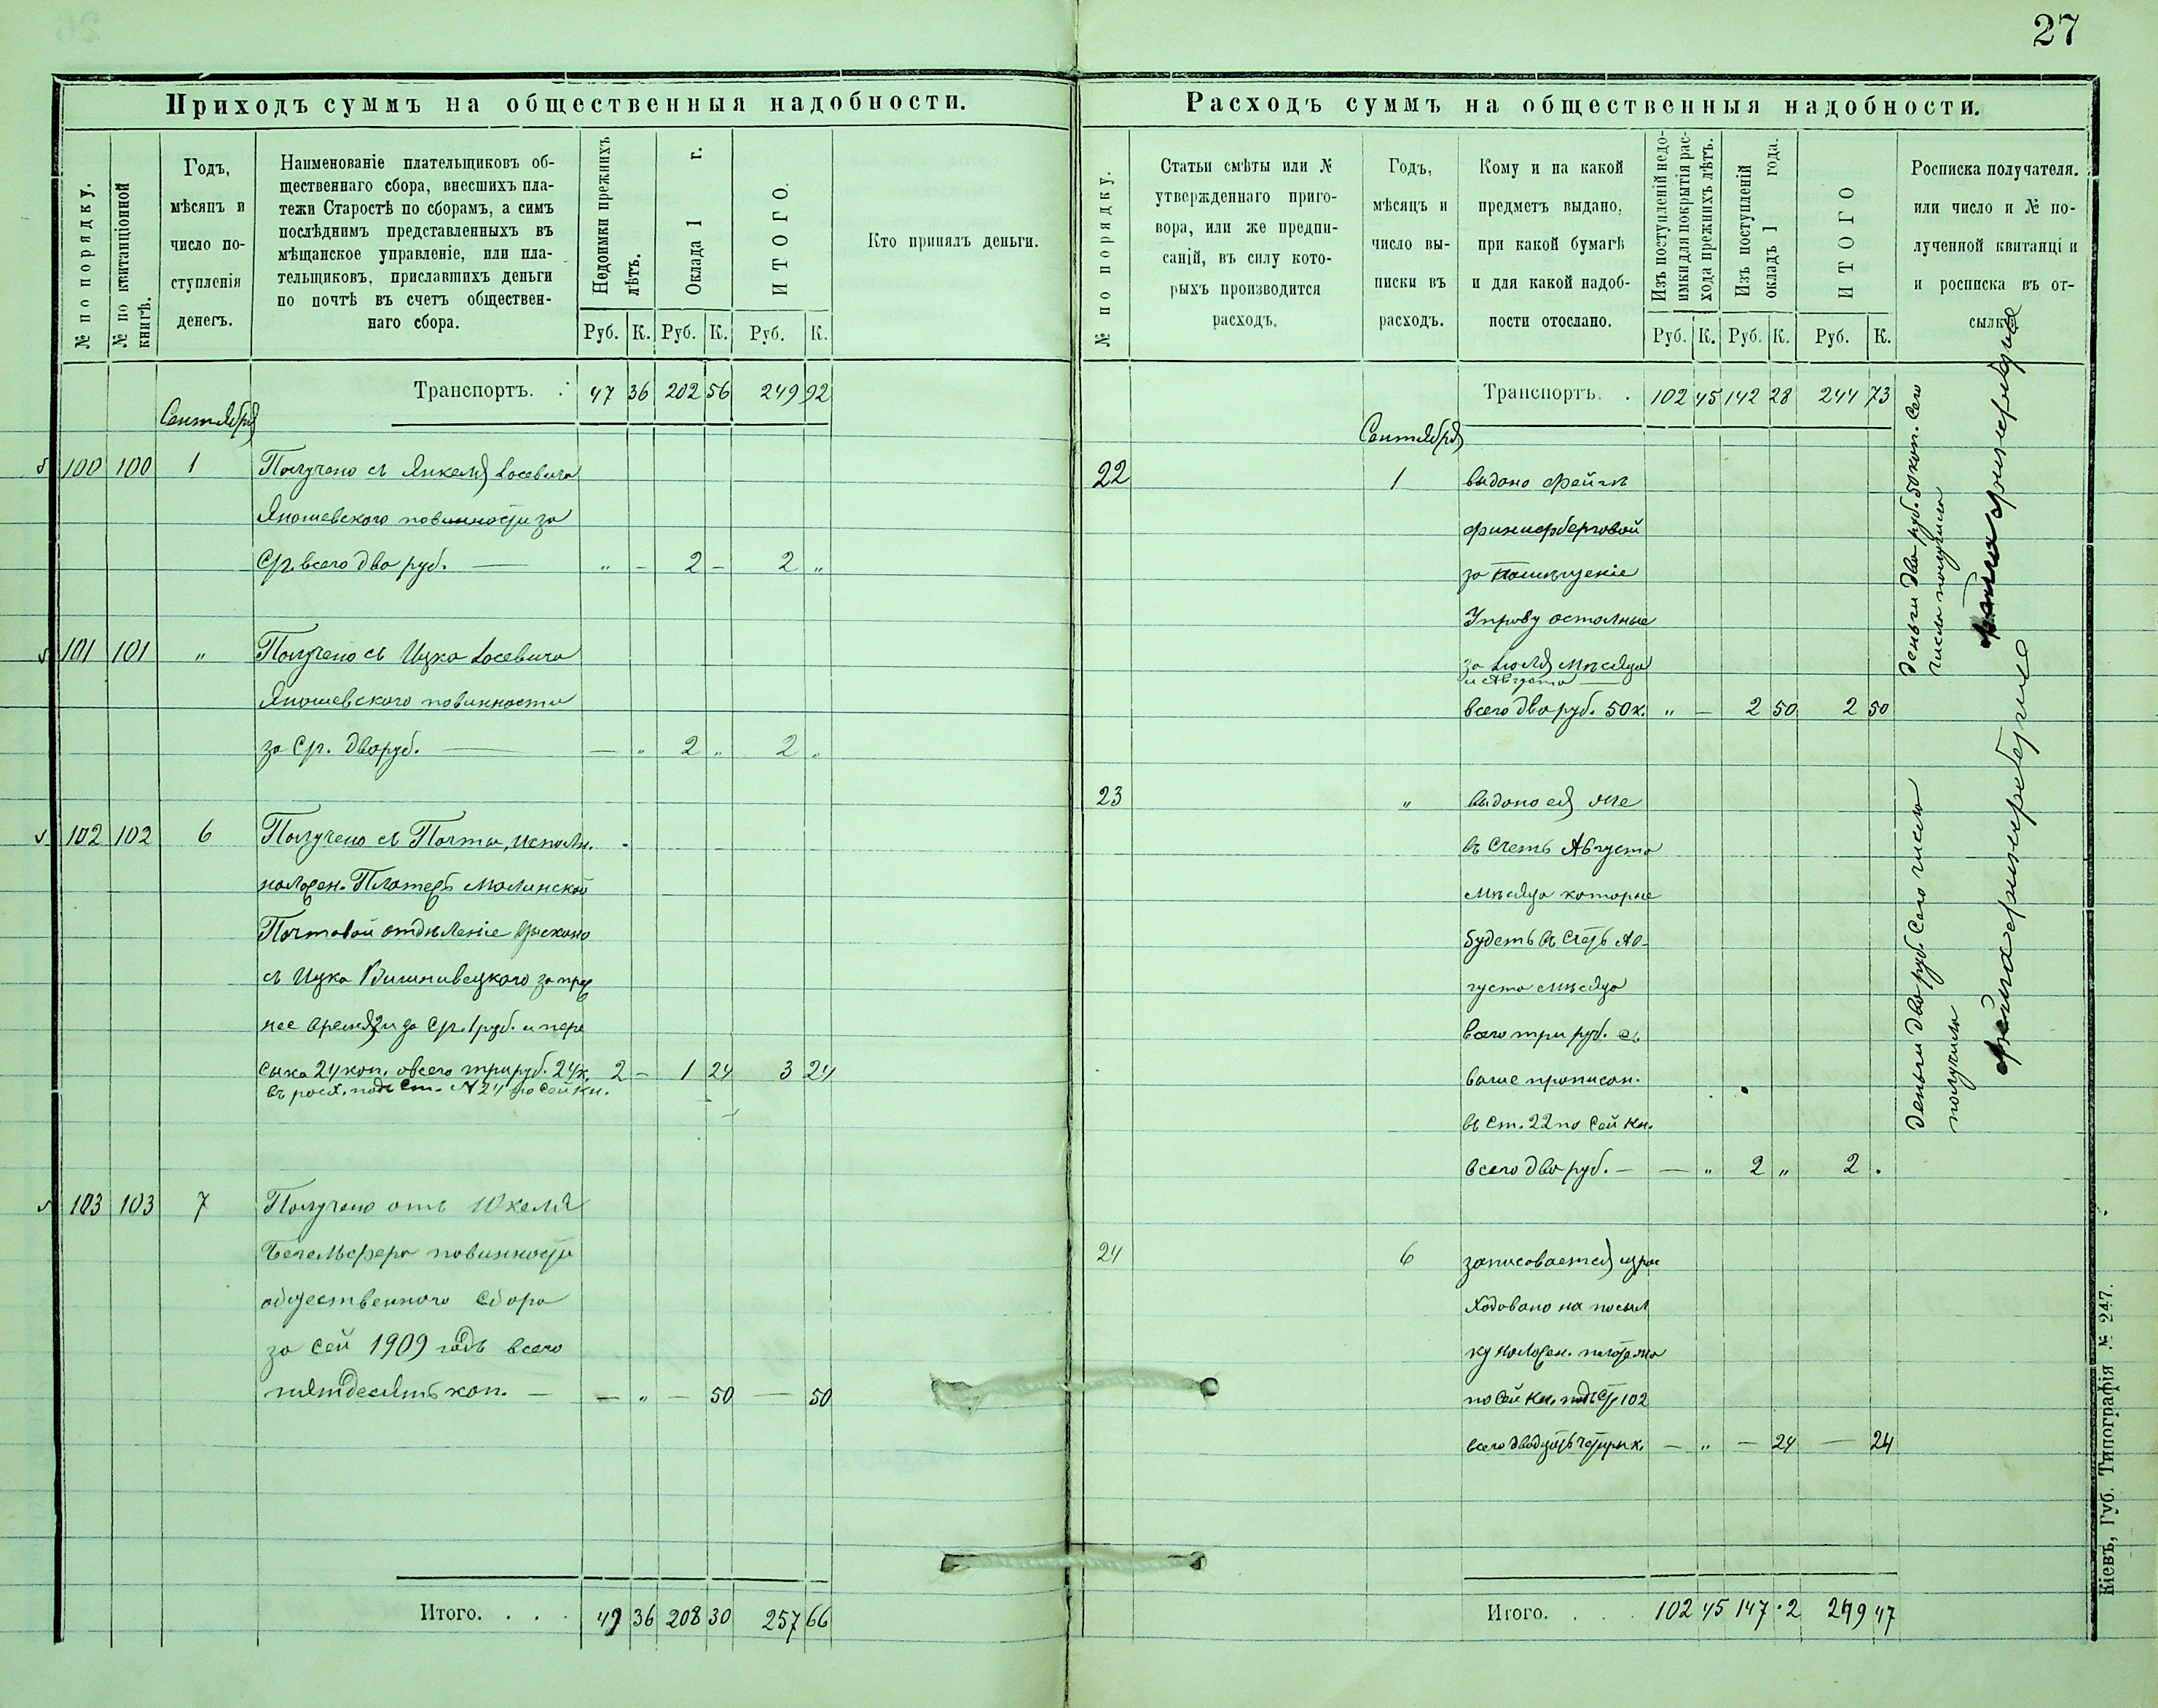 27
Приходъ суммъ на общественныя надобности.
№ по порядку.
№ по квитанціонной
книгѣ.
Годъ,
мѣсяцъ и
число по-
ступленія
денегъ.
Наименованіе плательщиковъ об-
щественнаго сбора, внесшихъ пла-
тежи Старостѣ по сборамъ, а симъ
послѣднимъ представленныхъ въ
мѣщанское управленіе, или пла-
тельщиковъ, приславшихъ деньги
по почтѣ въ счетъ обществен-
наго сбора.
Недоимки прежнихъ
лѣтъ.
Оклада 1 г.
ИТОГО.
Кто принялъ деньги.
Руб. К. Руб. К. Руб. К.
Транспортъ. 47 36 202 56 249 92
Сентября
100 100 1 Получено съ Янкеля Іосевича
Яношевского повинности за
С/г. всего два руб. — „ - 2 - 2 „
101 101 „ Получено съ Ицка Іосевича
Яношевского повинности
за С/г. два руб. — — „ 2 „ 2 „
102 102 6 Получено съ Почты,
Малинской
Почтовой отдѣленіе
съ Ицка Вишнивецкого за
нее время 2 и за С/г. 1 руб. и пере
сыка 24 коп. а всего три руб. 24 к. 2 - 1 24 3 24
въ расх. подъ Ст. № 24 по сей кн.
103 103 7 Получено отъ
повинности
общественного сбора
за сей 1909 годъ всего
пятдесятъ коп. — — „ — 50 — 50
Итого. . . . 49 36 208 30 257 66
Расходъ суммъ на общественныя надобности.
№ по порядку.
Статьи смѣты или №
утвержденнаго приго-
вора, или же предпи-
саній, въ силу кото-
рыхъ производится
расходъ.
Годъ,
мѣсяцъ и
число вы-
писки въ
расходъ.
Кому и на какой
предметъ выдано,
при какой бумагѣ
и для какой надоб-
ности отослано.
Изъ поступленій недо-
имки для покрытія рас-
хода прежнихъ лѣтъ.
Изъ поступленій
окладъ 1 года.
ИТОГО
Росписка получателя.
или число и № по-
лученной квитанціи
и росписка въ от-
сылкѣ
Руб. К. Руб. К. Руб. К.
Транспортъ. . 102 45 142 28 244 73
Сентября
22 1 выдано Фейгѣ
Финкефберговой
за помѣщеніе
Управу остальные
за Іюля мѣсяца
и Августа —
всего два руб. 50 к. „ — 2 50 2 50
Деньги два руб. 50 коп. сего
числа получила
23 „ выдано ей же
въ счетъ Августа
мѣсяца которые
будетъ въ счетъ Ав-
густа мѣсяца
всего три руб. съ
выше прописан.
въ ст. 22 по сей кн.
всего два руб. — — „ 2 „ 2 .
Деньги два руб. сего числа
получила
24 6 записовается израс
ходовано на посыл
ку налоген. платежа
по сей кн. подъ ст 102
всего двадцать четыри к. — „ — 24 — 24
Итого. . . . 102 45 147 .2 249 47
Кіевъ, Губ. Типографія № 247.